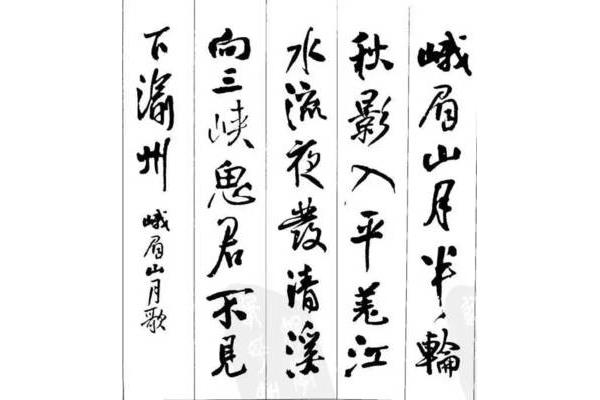 峨眉山月半輪
秋影入平羌江
水流夜發清溪
向三峡思君不見
下渝州
峨眉山月歌